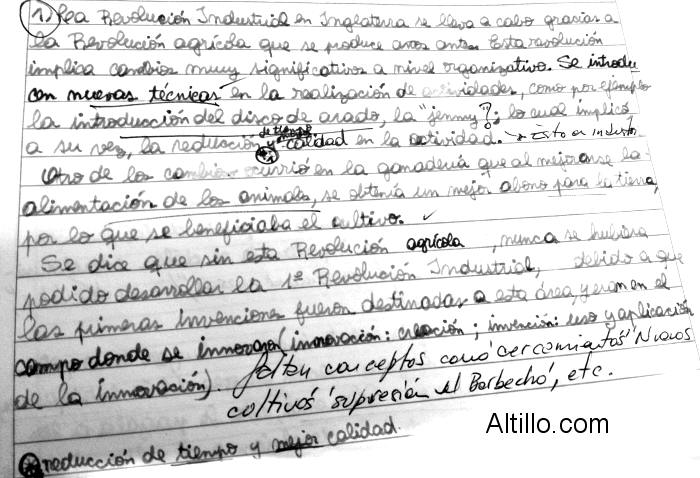 1) La Revolución Industrial en Inglaterra se lleva a cabo gracias a
la Revolución agrícola que se produce años antes. Esta revolución
implica cambios muy significativos a nivel organizativo. Se introdu
cen nuevas técnicas en la realización de actividades, como por ejemplo
la introducción del disco de arado, la "jenny"?; lo cual implicó
a su vez, la reducción de tiempo y calidad en la actividad. → Esto en industr.
Otro de los cambios ocurrió en la ganadería que al mejorarse la
alimentación de los animales, se obtenía un mejor abono para la tierra,
por lo que se beneficiaba el cultivo. ✓
Se dice que sin esta Revolución agrícola, nunca se hubiera
podido desarrollar la 1º Revolución Industrial, debido a que
las primeras invenciones fueron destinadas a esta área, y eran en el
campo donde se innovaron (innovación: creación; invención: uso y aplicación
de la innovación). Falten conceptos como 'cercamientos' Nuevos
cultivos' 'supresión del Barbecho', etc.
Altillo.com
* reducción de tiempo y mejor calidad.